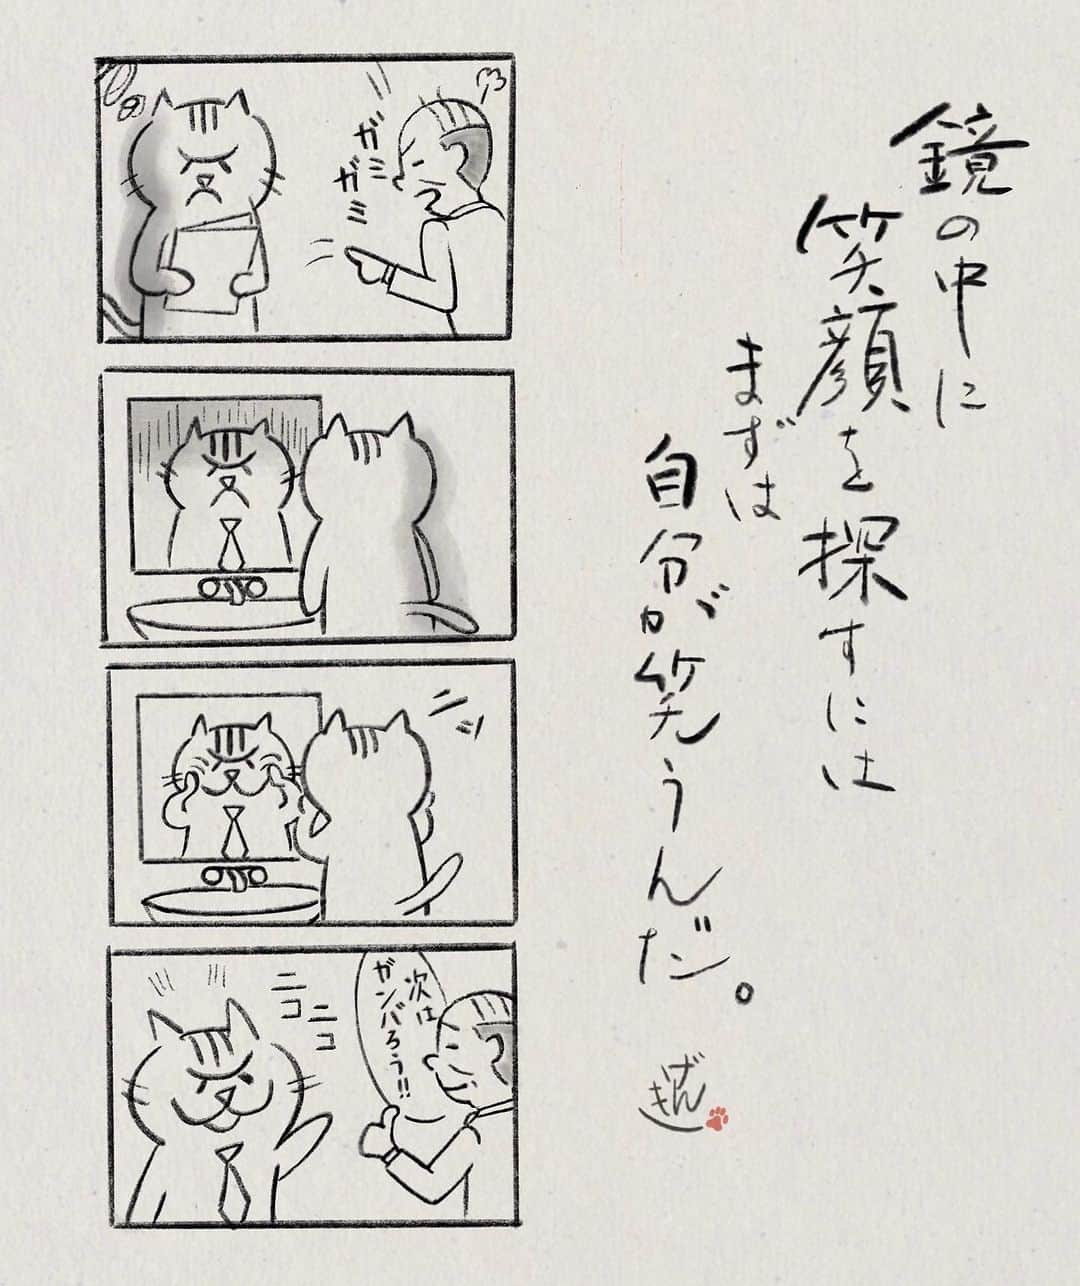 鏡の中に
笑顔を探すには
まずは
自分が笑うんだ。
げん
き
ガミ
ガミ
ニッ
次は
ガンバろう!!
ニコ
ニコ